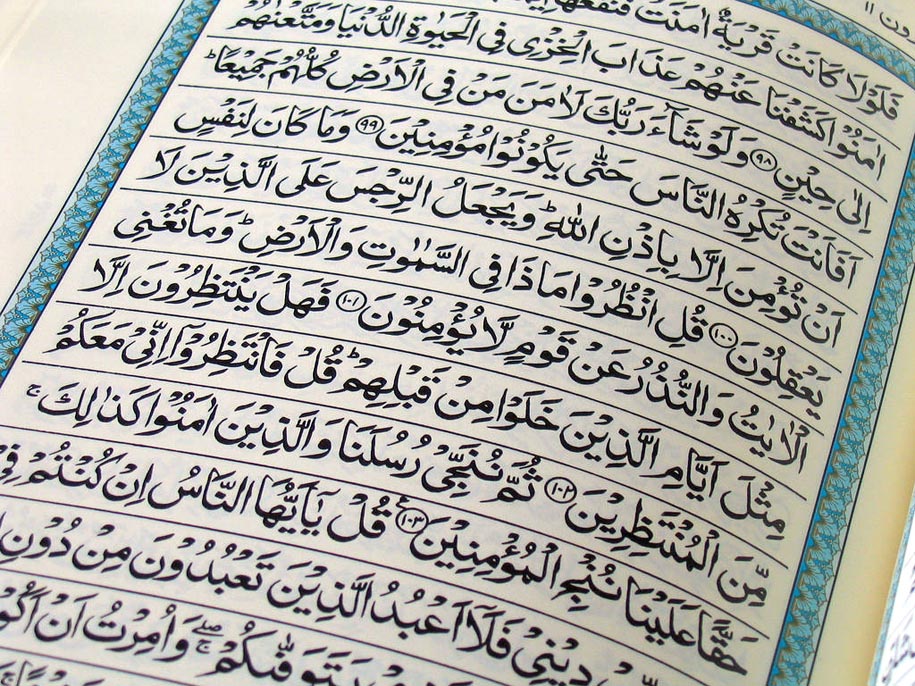 فَلَوْلَا كَانَتْ قَرْيَةٌ اٰمَنَتْ فَنَفَعَهَا
اٰمَنُوْا كَشَفْنَا عَنْهُمْ عَذَابَ الْخِزْىِ فِى الْحَيٰوةِ الدُّنْيَا وَمَتَّعْنٰهُمْ
اِلٰى حِيْنٍ ﴿٩٨﴾ وَلَوْ شَآءَ رَبُّكَ لَاٰمَنَ مَنْ فِى الْاَرْضِ كُلُّهُمْ جَمِيْعًا ؕ
اَفَاَنْتَ تُكْرِهُ النَّاسَ حَتّٰى يَكُوْنُوْا مُؤْمِنِيْنَ ﴿٩٩﴾ وَمَا كَانَ لِنَفْسٍ
اَنْ تُؤْمِنَ اِلَّا بِاِذْنِ اللّٰهِ ؕ وَيَجْعَلُ الرِّجْسَ عَلَى الَّذِيْنَ لَا
يَعْقِلُوْنَ ﴿١٠٠﴾ قُلِ انْظُرُوْا مَاذَا فِى السَّمٰوٰتِ وَالْاَرْضِ ؕ وَمَا تُغْنِى
الْاٰيٰتُ وَالنُّذُرُ عَنْ قَوْمٍ لَّا يُؤْمِنُوْنَ ﴿١٠١﴾ فَهَلْ يَنْتَظِرُوْنَ اِلَّا
مِثْلَ اَيَّامِ الَّذِيْنَ خَلَوْا مِنْ قَبْلِهِمْ ؕ قُلْ فَانْتَظِرُوْۤا اِنِّىْ مَعَكُمْ
مِّنَ الْمُنْتَظِرِيْنَ ﴿١٠٢﴾ ثُمَّ نُنَجِّىْ رُسُلَنَا وَالَّذِيْنَ اٰمَنُوْا كَذٰلِكَ ۚ
حَقًّا عَلَيْنَا نُنْجِ الْمُؤْمِنِيْنَ ﴿١٠٣﴾ قُلْ يٰۤاَيُّهَا النَّاسُ اِنْ كُنْتُمْ فِىْ
دِيْنِىْ فَلَاۤ اَعْبُدُ الَّذِيْنَ تَعْبُدُوْنَ مِنْ دُوْنِ
يَتَوَفّٰىكُمْ ۖۚ وَاُمِرْتُ اَنْ اَكُوْنَ